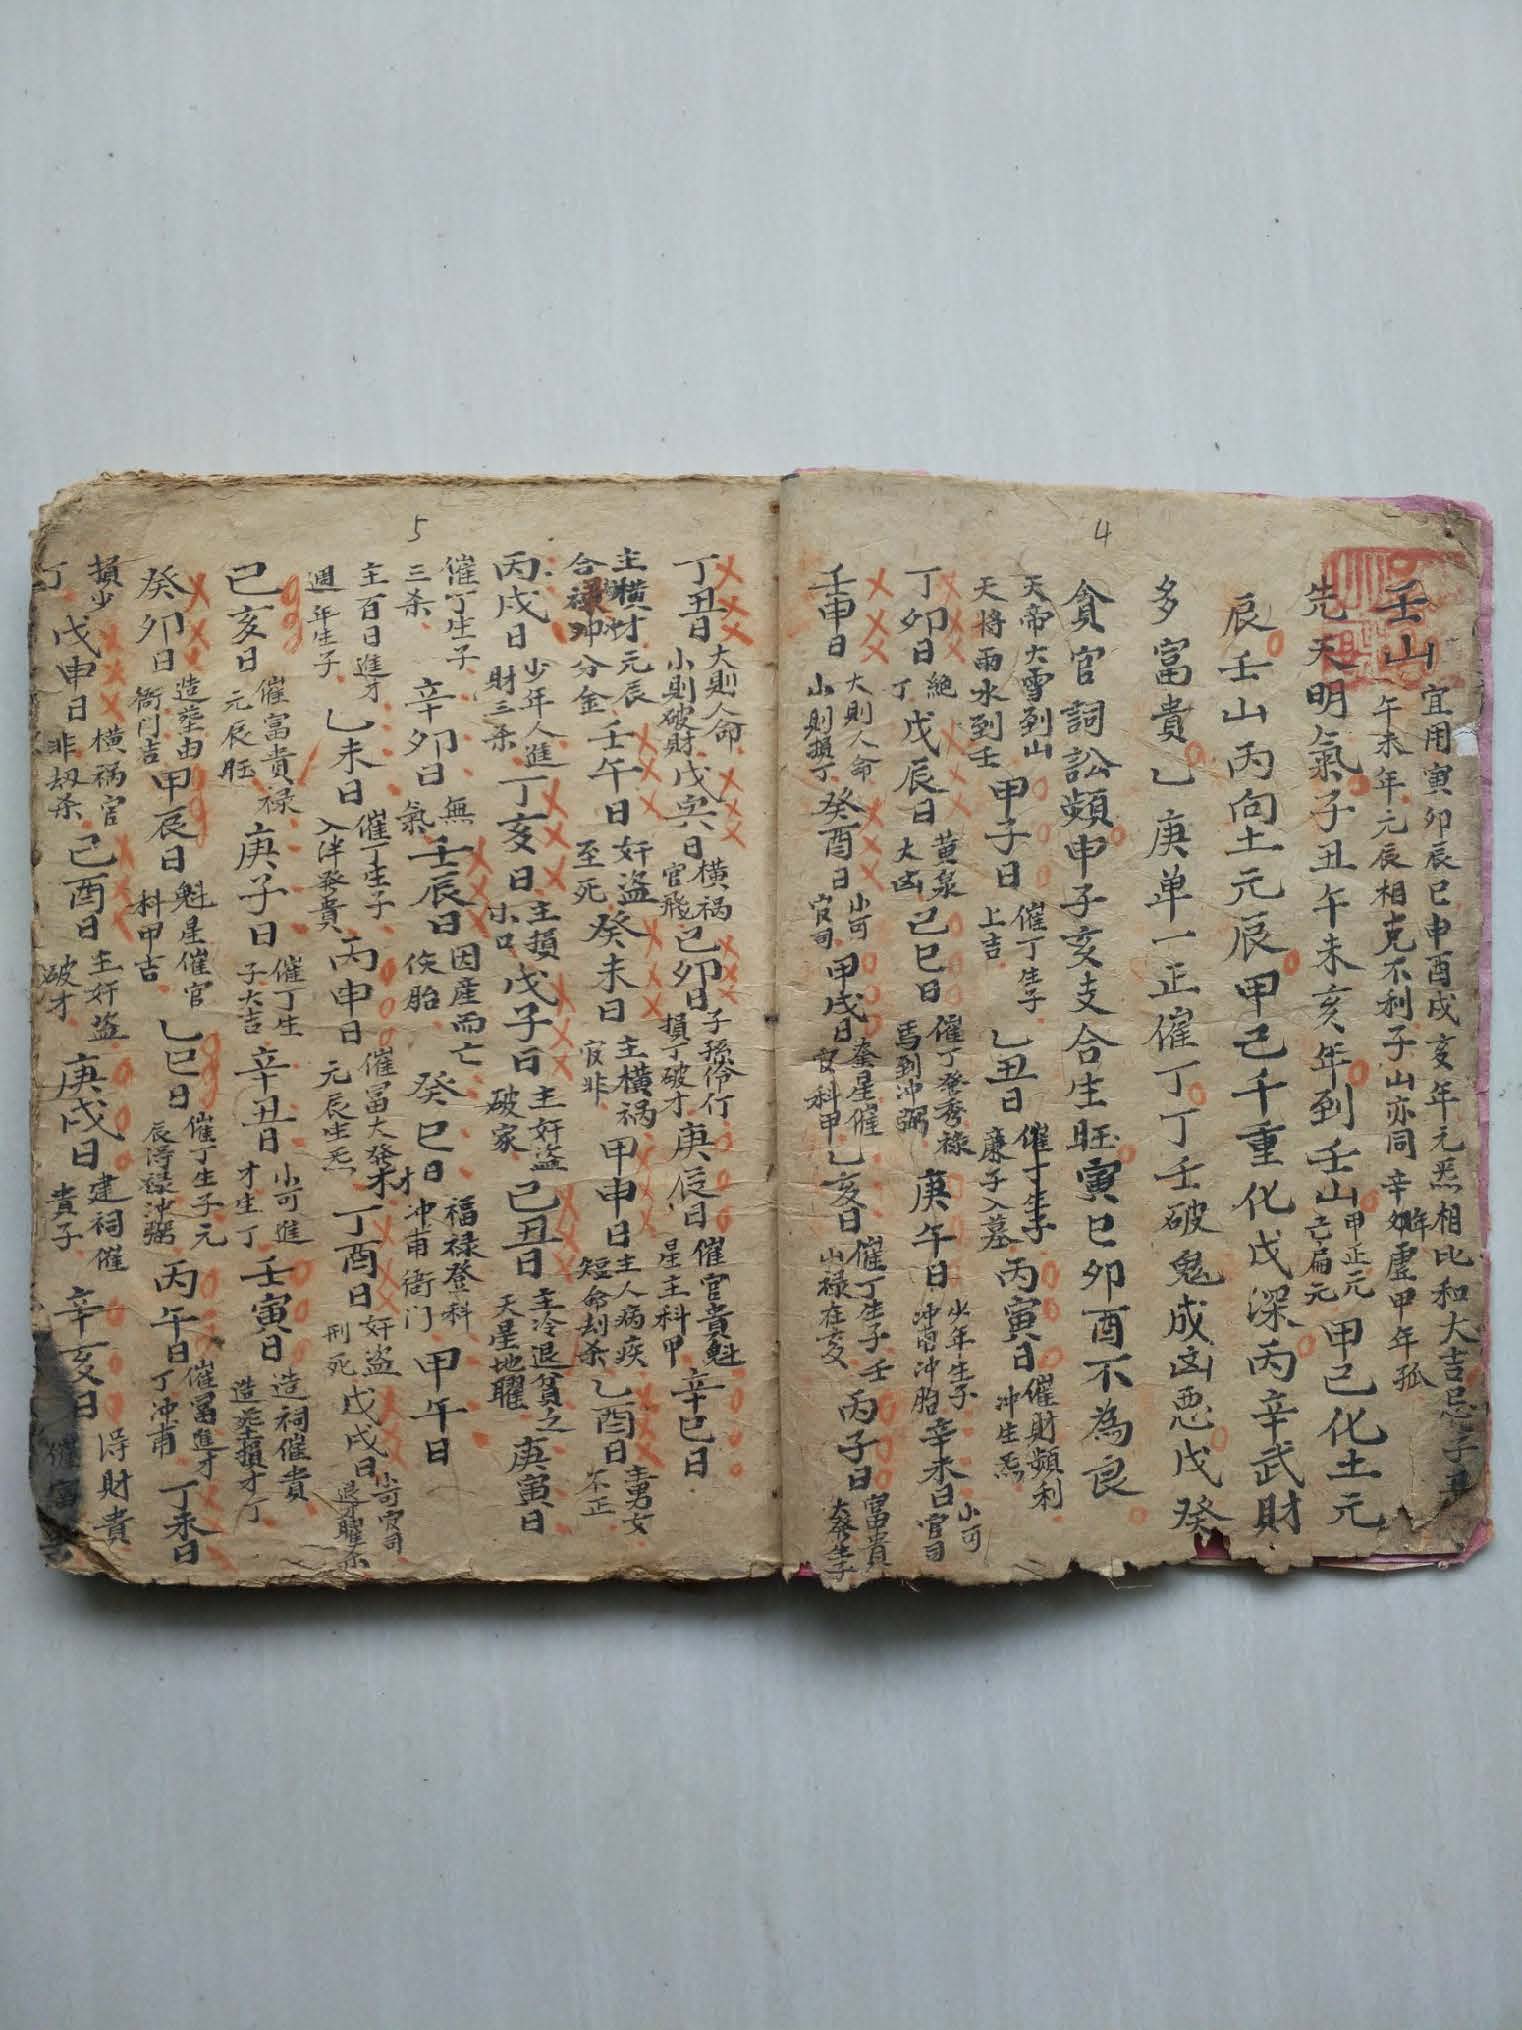 4
壬山
宜用寅卯辰巳申酉戌亥年元炁相比和大吉忌子丑
午未年元辰相克不利子山亦同辛卯年虚甲年孤
先天明氣子丑午未亥年到壬山甲正元己扁元甲己化土元
辰壬山丙向土元辰甲己千重化戊深丙辛武財
多富貴乙庚单一正催丁丁壬破鬼成凶悪戊癸
貪官詞訟頻申子亥支合生旺寅巳卯酉不為良
天帝大雪到山
天將雨水到壬
甲子日催丁生子上吉
乙丑日催丁生子廉子入墓
丙寅日催財頻利冲生炁
丁卯日絶丁
戊辰日黄泉大凶
己巳日催丁發秀祿馬到冲弼
庚午日少年生子冲官冲胎
辛未日小可官司
壬申日大則人命小則損丁
癸酉日小可官司
甲戌日奎星催官科甲
乙亥日催丁生子壬山禄在亥
丙子日富貴大發生子
5
丁丑日大則人命小則破財
戊寅日横禍官飛
己卯日子孫伶仃損丁破才
庚辰日催官貴魁星主科甲
辛巳日
主横才元辰
合禄冲分金
壬午日奸盗至死
癸未日主横禍官非
甲申日主人病疾短命刦杀
乙酉日主男女不正
丙戌日少年人進財三杀
丁亥日主損小口
戊子日主奸盗破家
己丑日主冷退貧乏天星地曜
庚寅日
催丁生子
三杀
辛卯日無氣
壬辰日因産而亡侯胎
癸巳日福禄登科冲甫衙门
甲午日
主百日進才
週年生子
乙未日催丁生子入泮發貴
丙申日催富大發才元辰生炁
丁酉日奸盗刑死
戊戌日小可官司退才曜杀
己亥日催富貴禄元辰旺
庚子日催丁生子大吉
辛丑日小可進才生丁
壬寅日造祠催貴造塟損才丁
癸卯日造塟由衙门吉
甲辰日魁星催官科甲吉
乙巳日催丁生子元辰得禄冲弼
丙午日催富進才丁冲甫
丁未日
損少
丁
戊申日横禍官非刼杀
己酉日主奸盗破才
庚戌日建祠催貴子
辛亥日得財貴催富